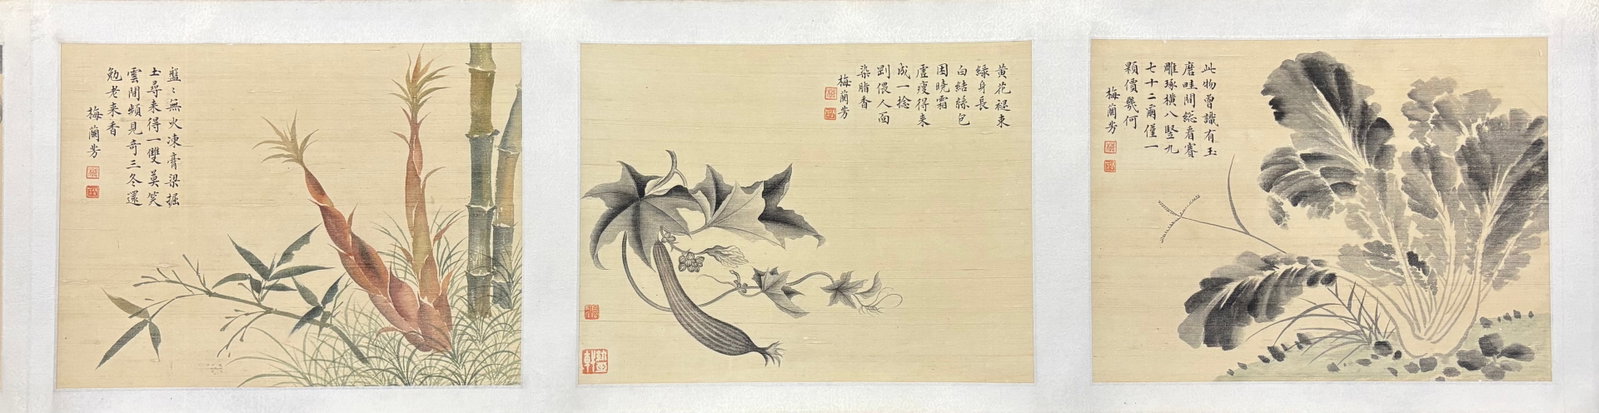 此物曾識有玉
磨畦間総看賽
雕琢橫八竪九
七十二爾僅一
顆價幾何
梅蘭芳
黃花褪束
綠身長
白結絲包
困曉霜
虛瘦得来
成一捻
剛偎人面
染脂香
梅蘭芳
盤〻無火凍膏粱掘
土尋来得一雙莫笑
雲間頻見奇三冬還
勉老来香
梅蘭芳